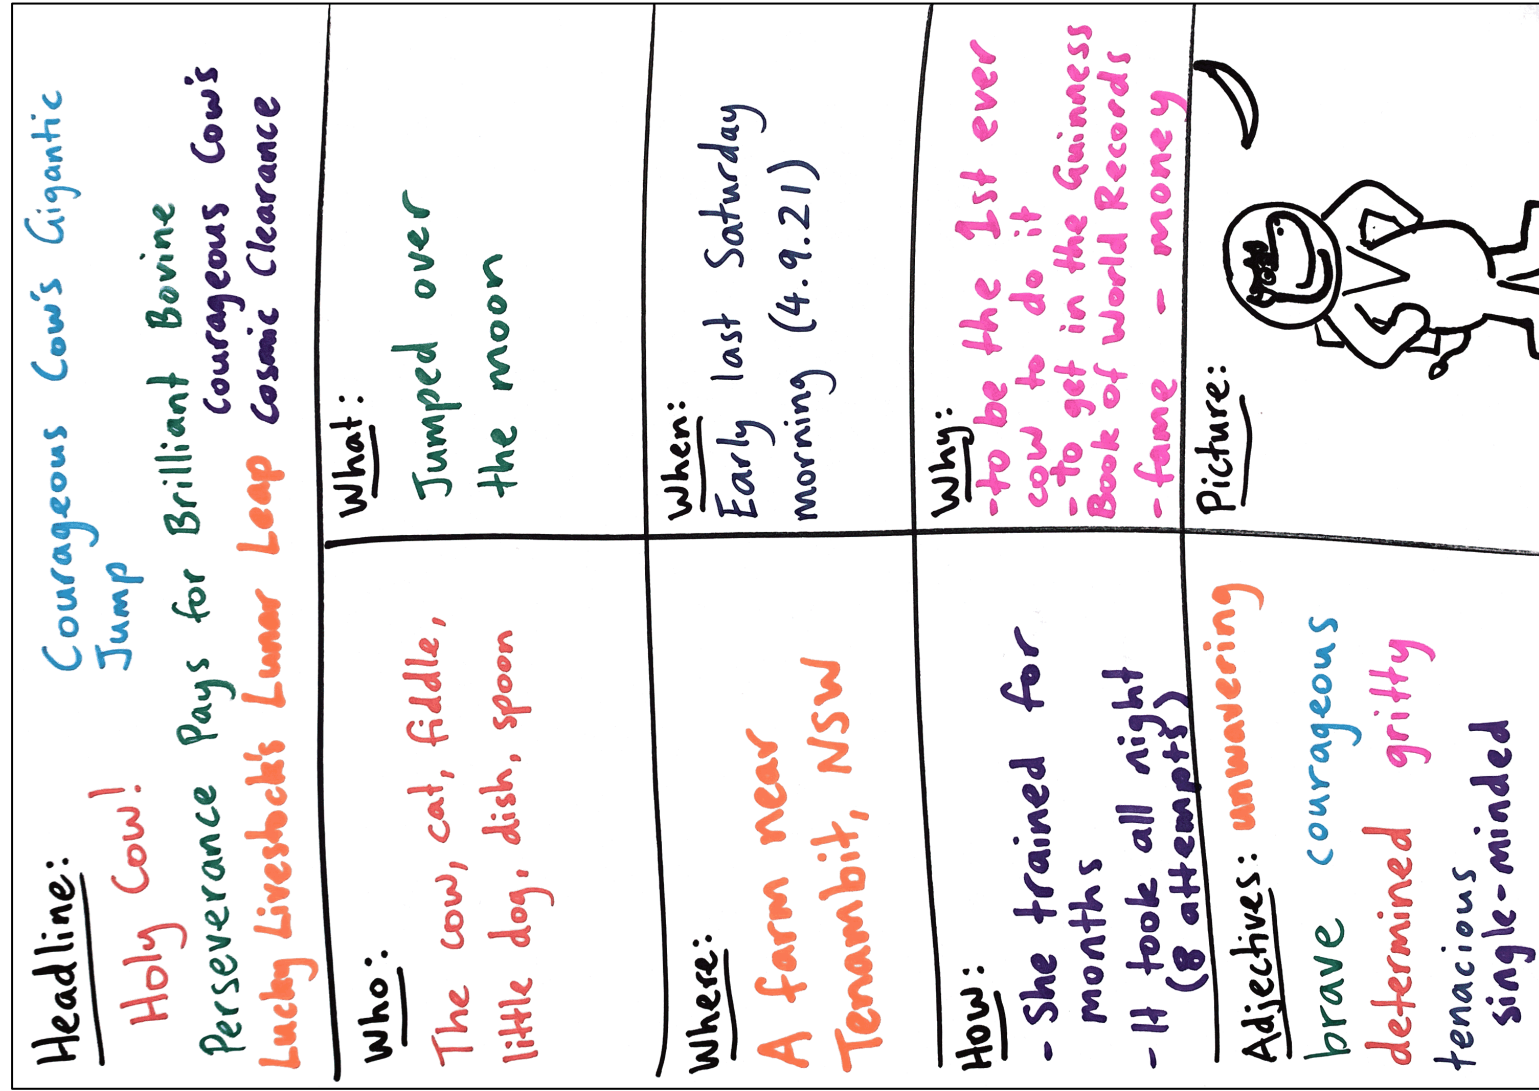 Headline:
Courageous Cow's Gigantic
Jump
Holy Cow!
Perseverance Pays for Brilliant Bovine
Courageous Cow's
Cosmic Clearance
Lucky Livestock's Lunar Leap
Who:
The cow, cat, fiddle,
little dog, dish, spoon
What:
Jumped over
the moon
Where:
A farm near
Tenambit, NSW
When:
Early last Saturday
morning (4.9.21)
How:
- She trained for
months
- It took all night
(8 attempts)
Why:
- to be the 1st ever
cow to do it
- to get in the Guinness
Book of World Records
- fame - money
Adjectives: unwavering
brave courageous
determined gritty
tenacious
single-minded
Picture: